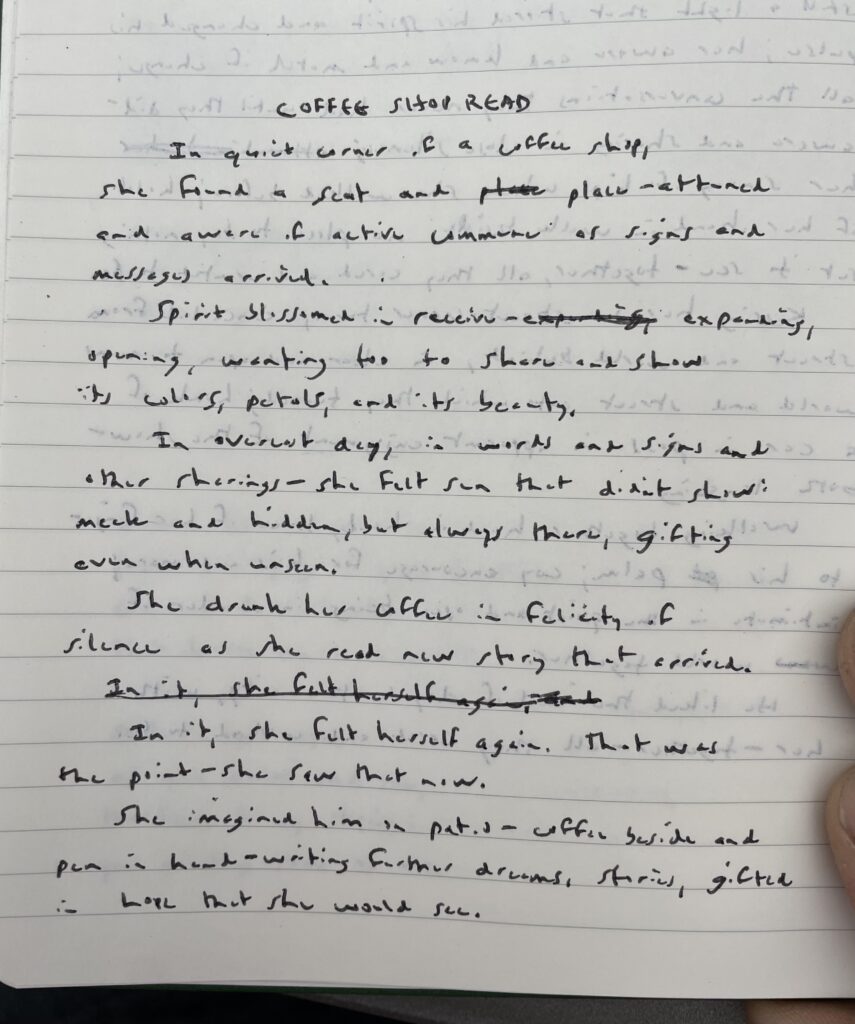 COFFEE SHOP READ
In quiet corner of a coffee shop,
she found a seat and place place - attuned
and aware of active commune as signs and
messages arrived.
Spirit blossomed in receive - expanding, expanding,
opening, wanting too to share and show
its colors, petals, and its beauty.
In overcast day, in words and signs and
other sharings - she felt sun that didn't show:
meek and hidden, but always there, gifting
even when unseen.
She drank her coffee in felicity of
silence as she read new story that arrived.
In it, she felt herself again, and
In it, she felt herself again. That was
the point - she saw that now.
She imagined him on patio - coffee beside and
pen in hand - writing further dreams, stories, gifted
in hope that she would see.